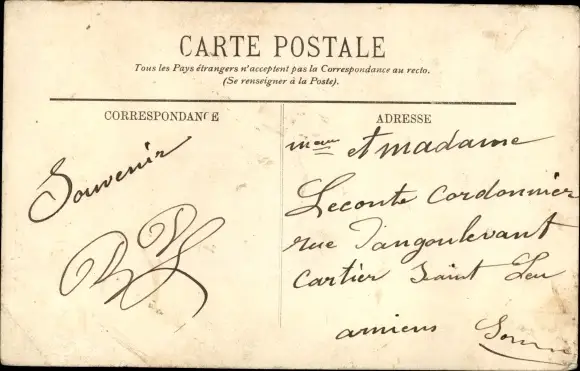 CARTE POSTALE
Tous les Pays étrangers n'acceptent pas la Correspondance au recto.
(Se renseigner à la Poste).
CORRESPONDANCE
Souvenir
ADRESSE
et madame
Leconte Cordonnier
rue Dangoulevant
Cartier Saint Leu
amiens Somme